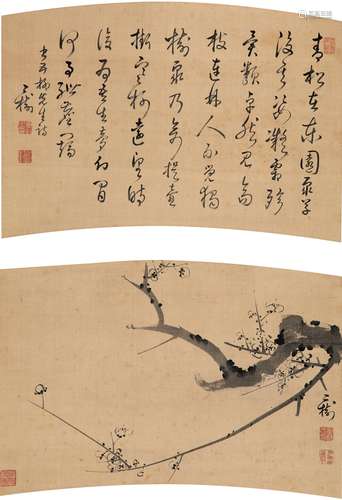 青松在東園眾草
沒其姿凝霜殄
異類卓然見高
枝連林人不覺獨
樹眾乃奇提壺
撫寒柯遠望時
復為吾生夢幻間
何事紲塵羈
書五柳先生詩
二樹
二樹